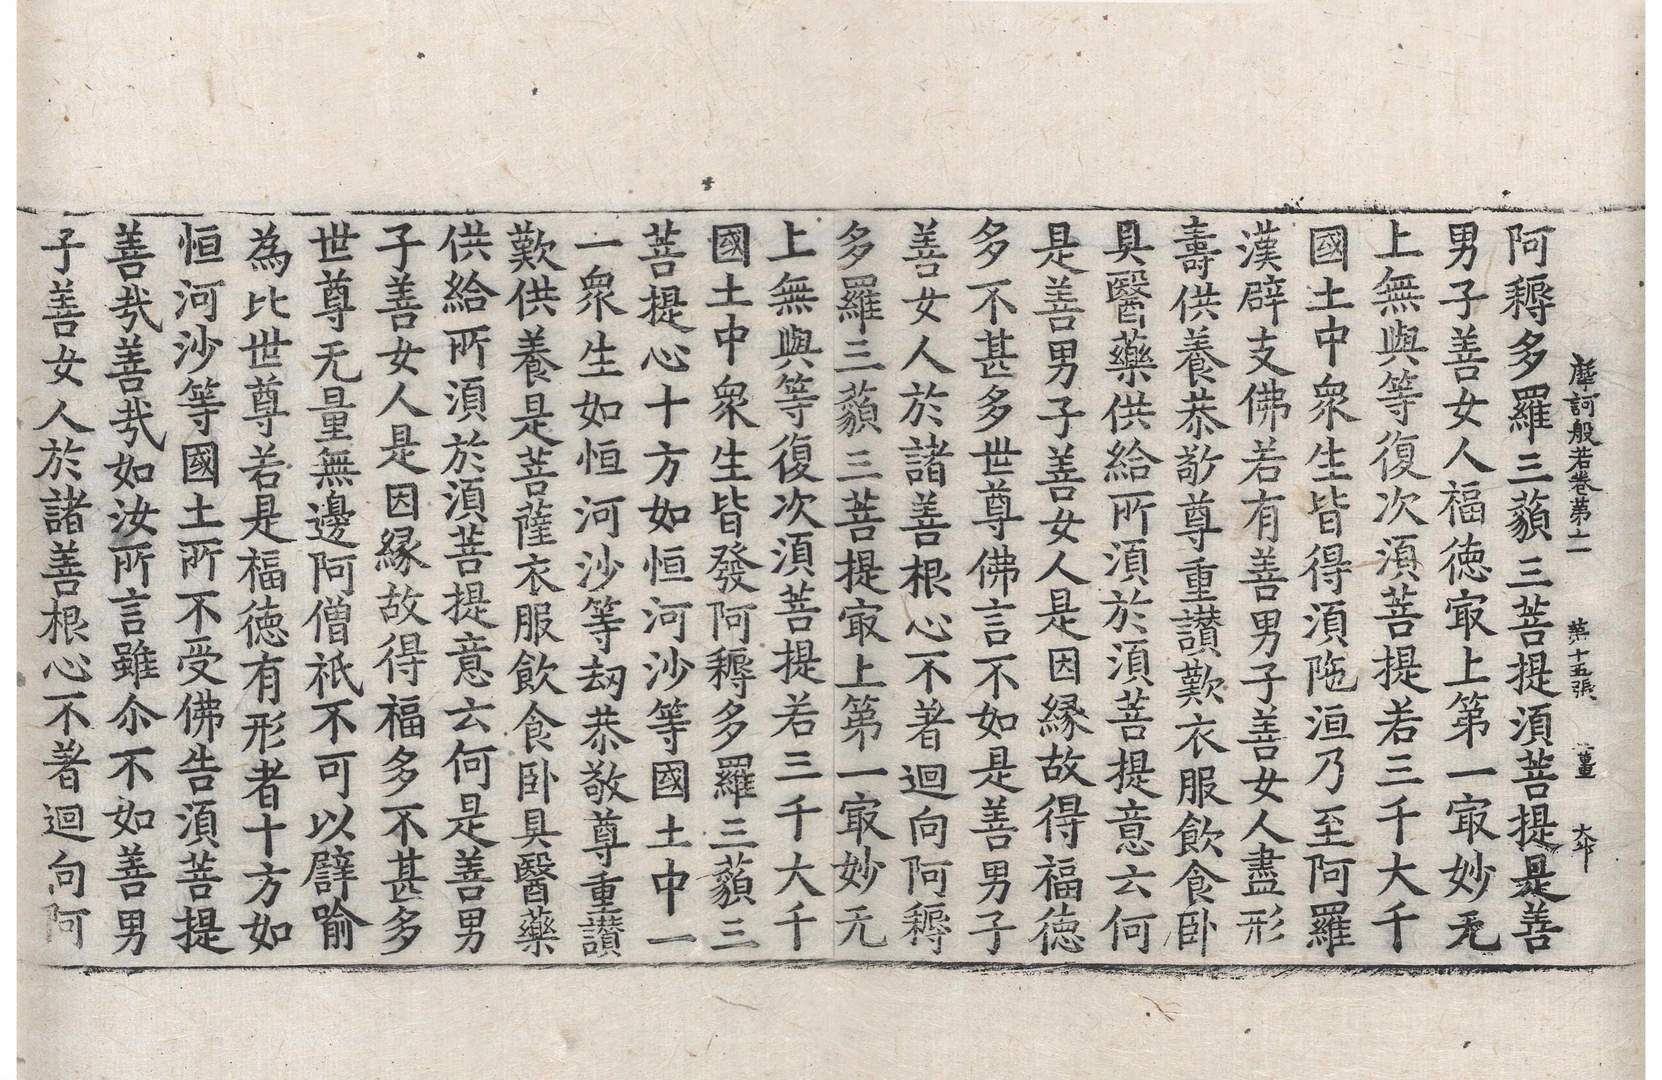 摩訶般若卷第十一 第十五張 薑
阿耨多羅三藐三菩提須菩提是善
男子善女人福徳㝡上第一㝡妙无
上無與等復次須菩提若三千大千
國土中衆生皆得須陁洹乃至阿羅
漢辟支佛若有善男子善女人盡形
壽供養恭敬尊重讃歎衣服飲食卧
具醫藥供給所須於須菩提意云何
是善男子善女人是因縁故得福徳
多不甚多世尊佛言不如是善男子
善女人於諸善根心不著迴向阿耨
多羅三藐三菩提㝡上第一㝡妙无
上無與等復次須菩提若三千大千
國土中衆生皆發阿耨多羅三藐三
菩提心十方如恒河沙等國土中一
一衆生如恒河沙等劫恭敬尊重讃
歎供養是菩薩衣服飲食卧具醫藥
供給所須於須菩提意云何是善男
子善女人是因縁故得福多不甚多
世尊无量無邊阿僧祇不可以譬喻
為比世尊若是福徳有形者十方如
恒河沙等國土所不受佛告須菩提
善哉善哉如汝所言雖尒不如善男
子善女人於諸善根心不著迴向阿